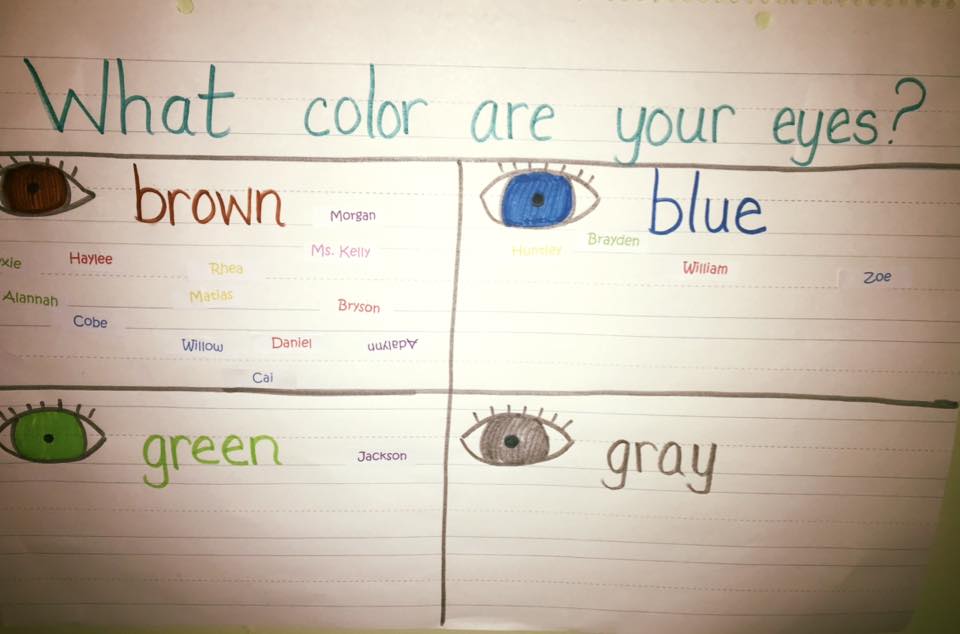 What color are your eyes?
brown
Morgan
Ms. Kelly
xie Haylee
Rhea
Alannah Matias
Bryson
Cobe
Willow Daniel Adalynn
Cai
blue
Huntley Brayden
William
Zoe
green
Jackson
gray